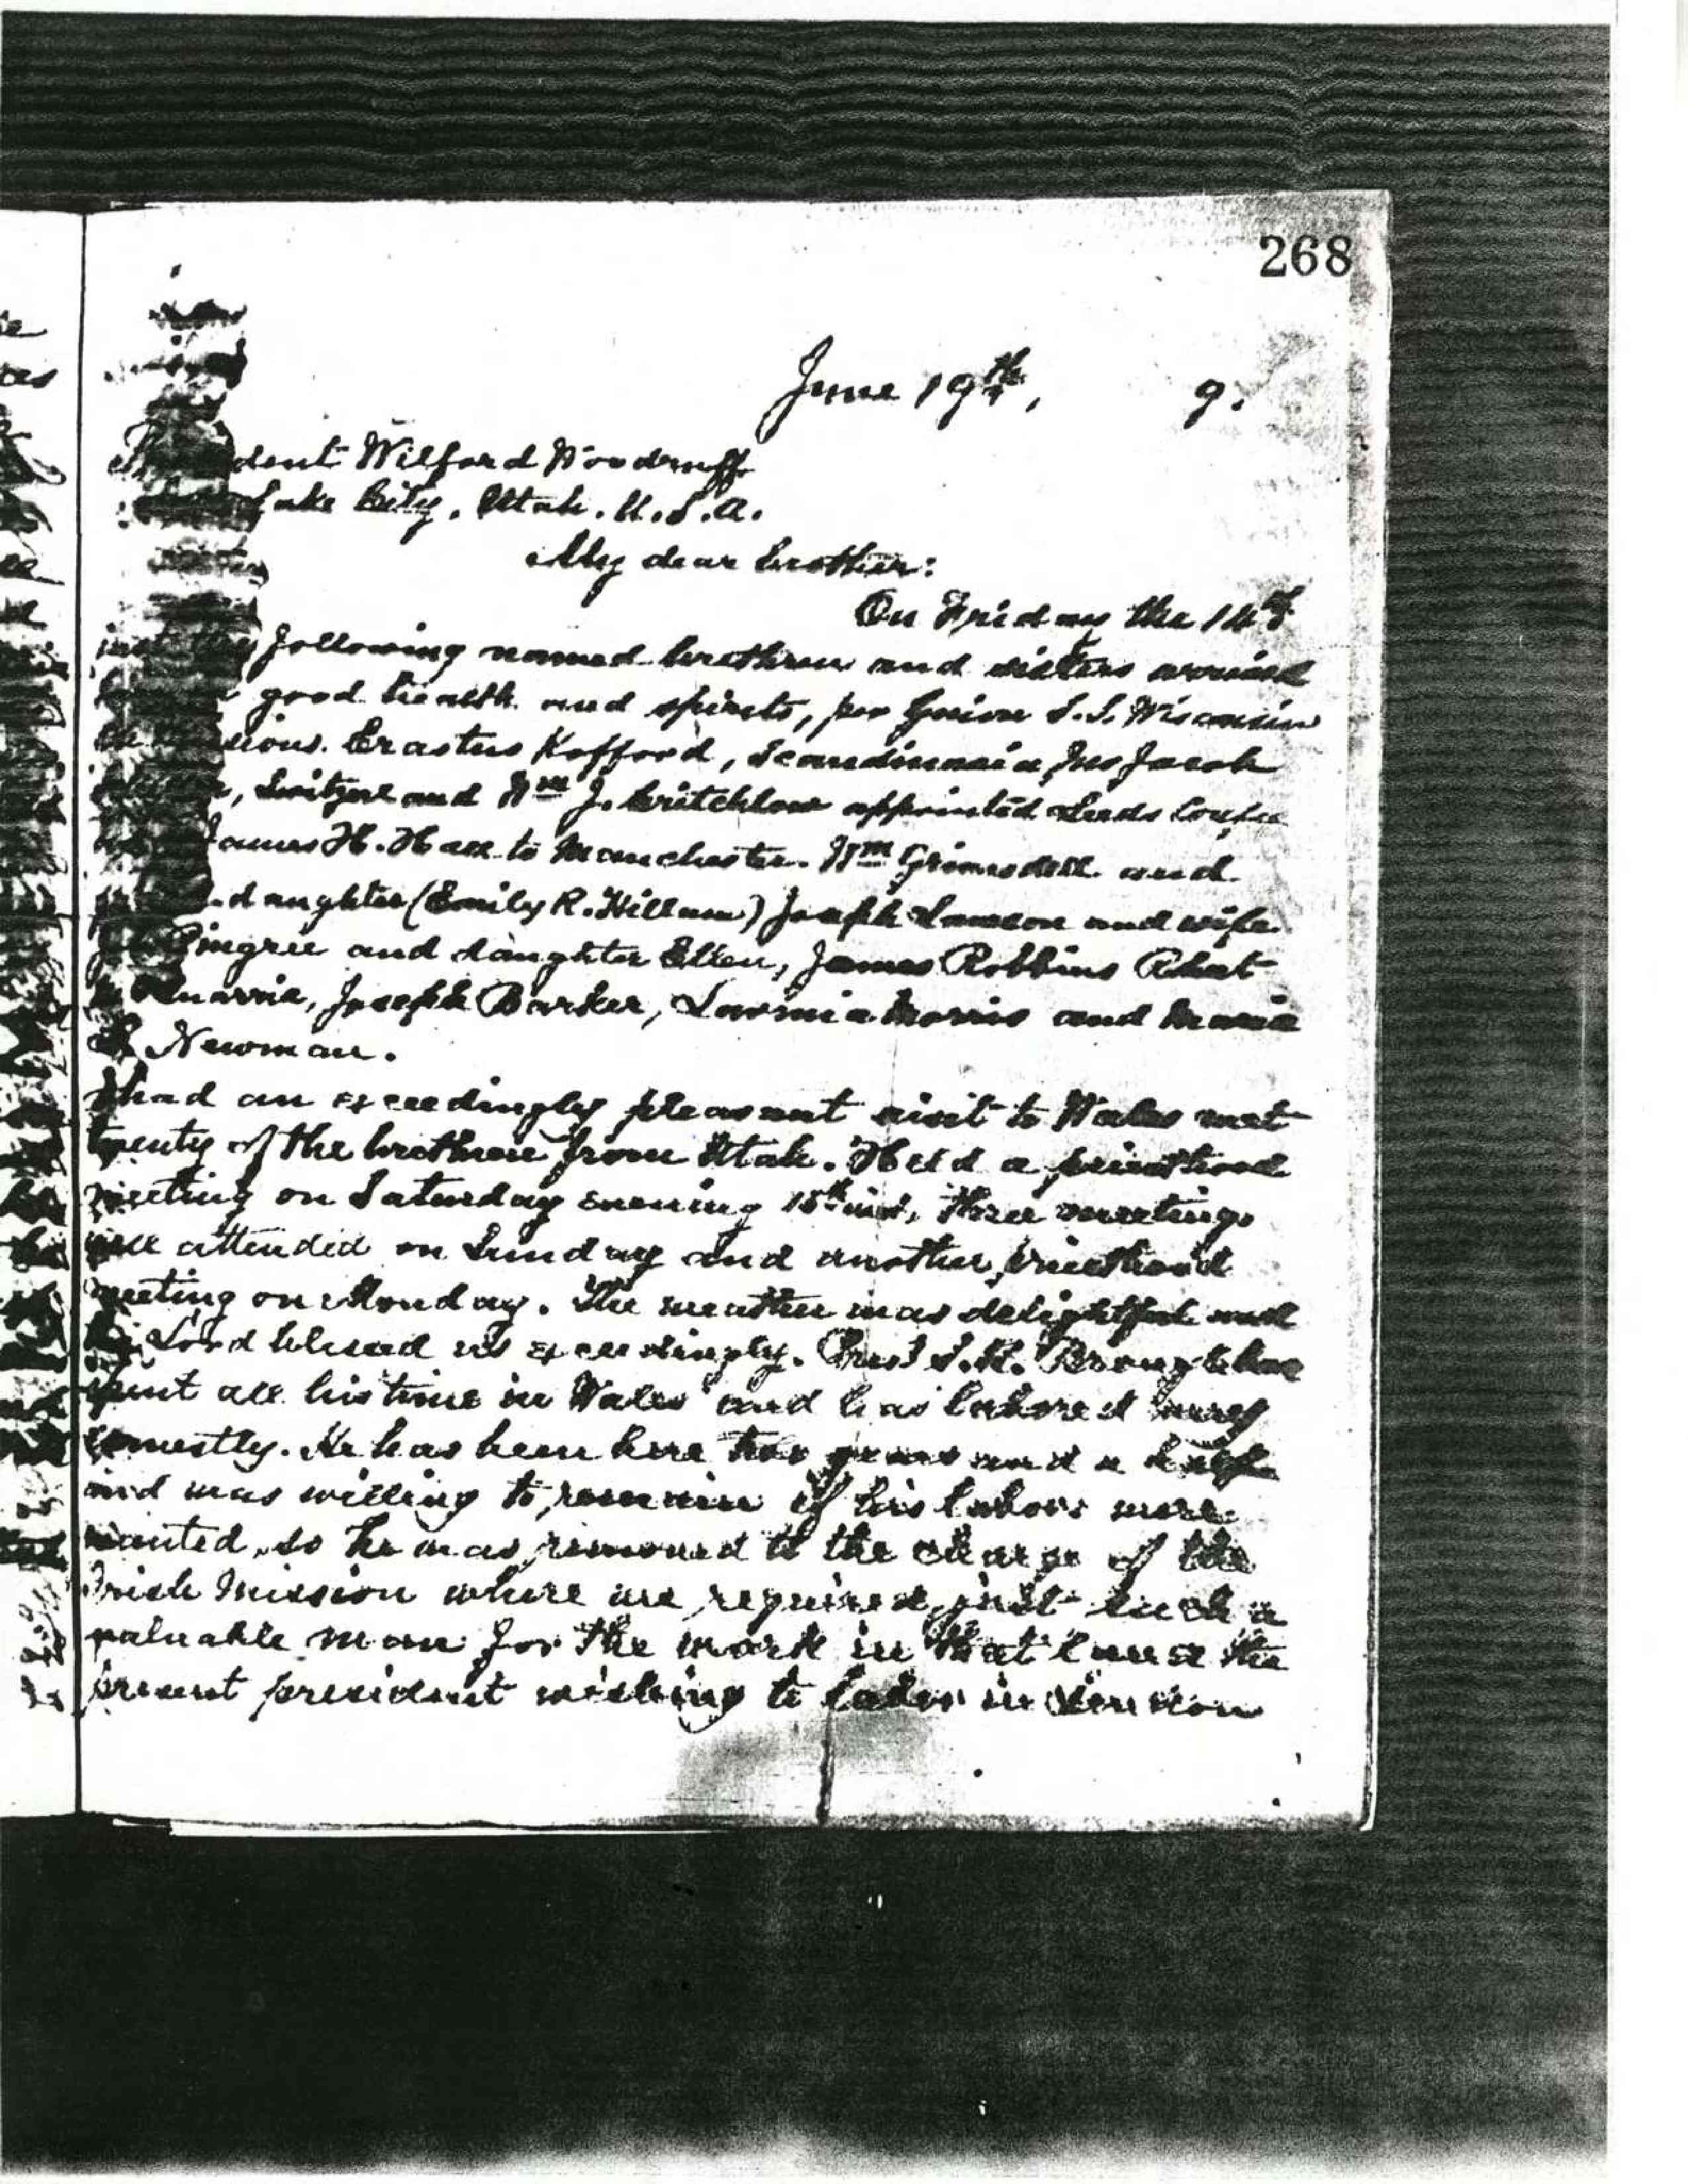 268
June 19th, 9.
dent Wilford Woodruff
Lake City, Utah. U.S.A.
My dear brother:
On Friday the 14th
inst the following named brethren and sisters arrived
good health and spirits, per Guion S.S. Wisconsin
sions. Erastus Kofford, Scandinavia, Jno Jacob
Switzerland Wm J. Critchlow appointed Leeds
James H. Hall to Manchester. Wm Grimsdell and
daughter (Emily R. Killam) Joseph Lawson and wife
Pingree and daughter Ellen, James Robbins Robt
Joseph Barker, Lavinia Morris and Maria
Newman.
I had an exceedingly pleasant visit to Wales met
twenty of the brethren from Utah. Held a priesthood
meeting on Saturday evening 15th inst, three meetings
well attended on Sunday and another priesthood
meeting on Monday. The weather was delightful and
the Lord blessed us exceedingly. Prest S.R. Brough has
spent all his time in Wales and has labored very
earnestly. He has been here two years and a half
and was willing to remain if his labors were
wanted, so he was removed to the charge of the
Irish Mission where we required just such a
valuable man for the work in that land the
present president wishing to labor in